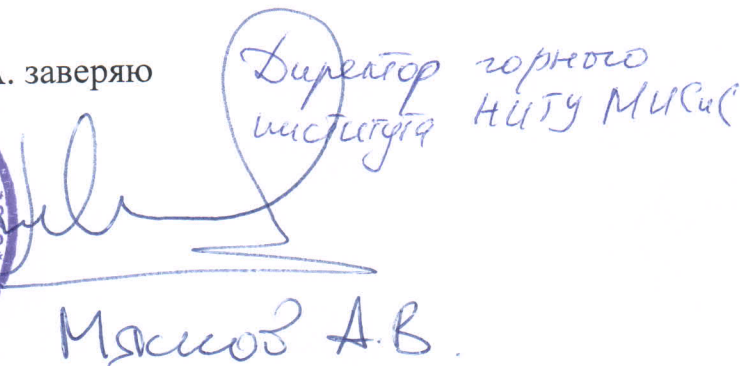 А. заверяю
Директор горного
института НИТУ МИСиС
Мясков А.В.